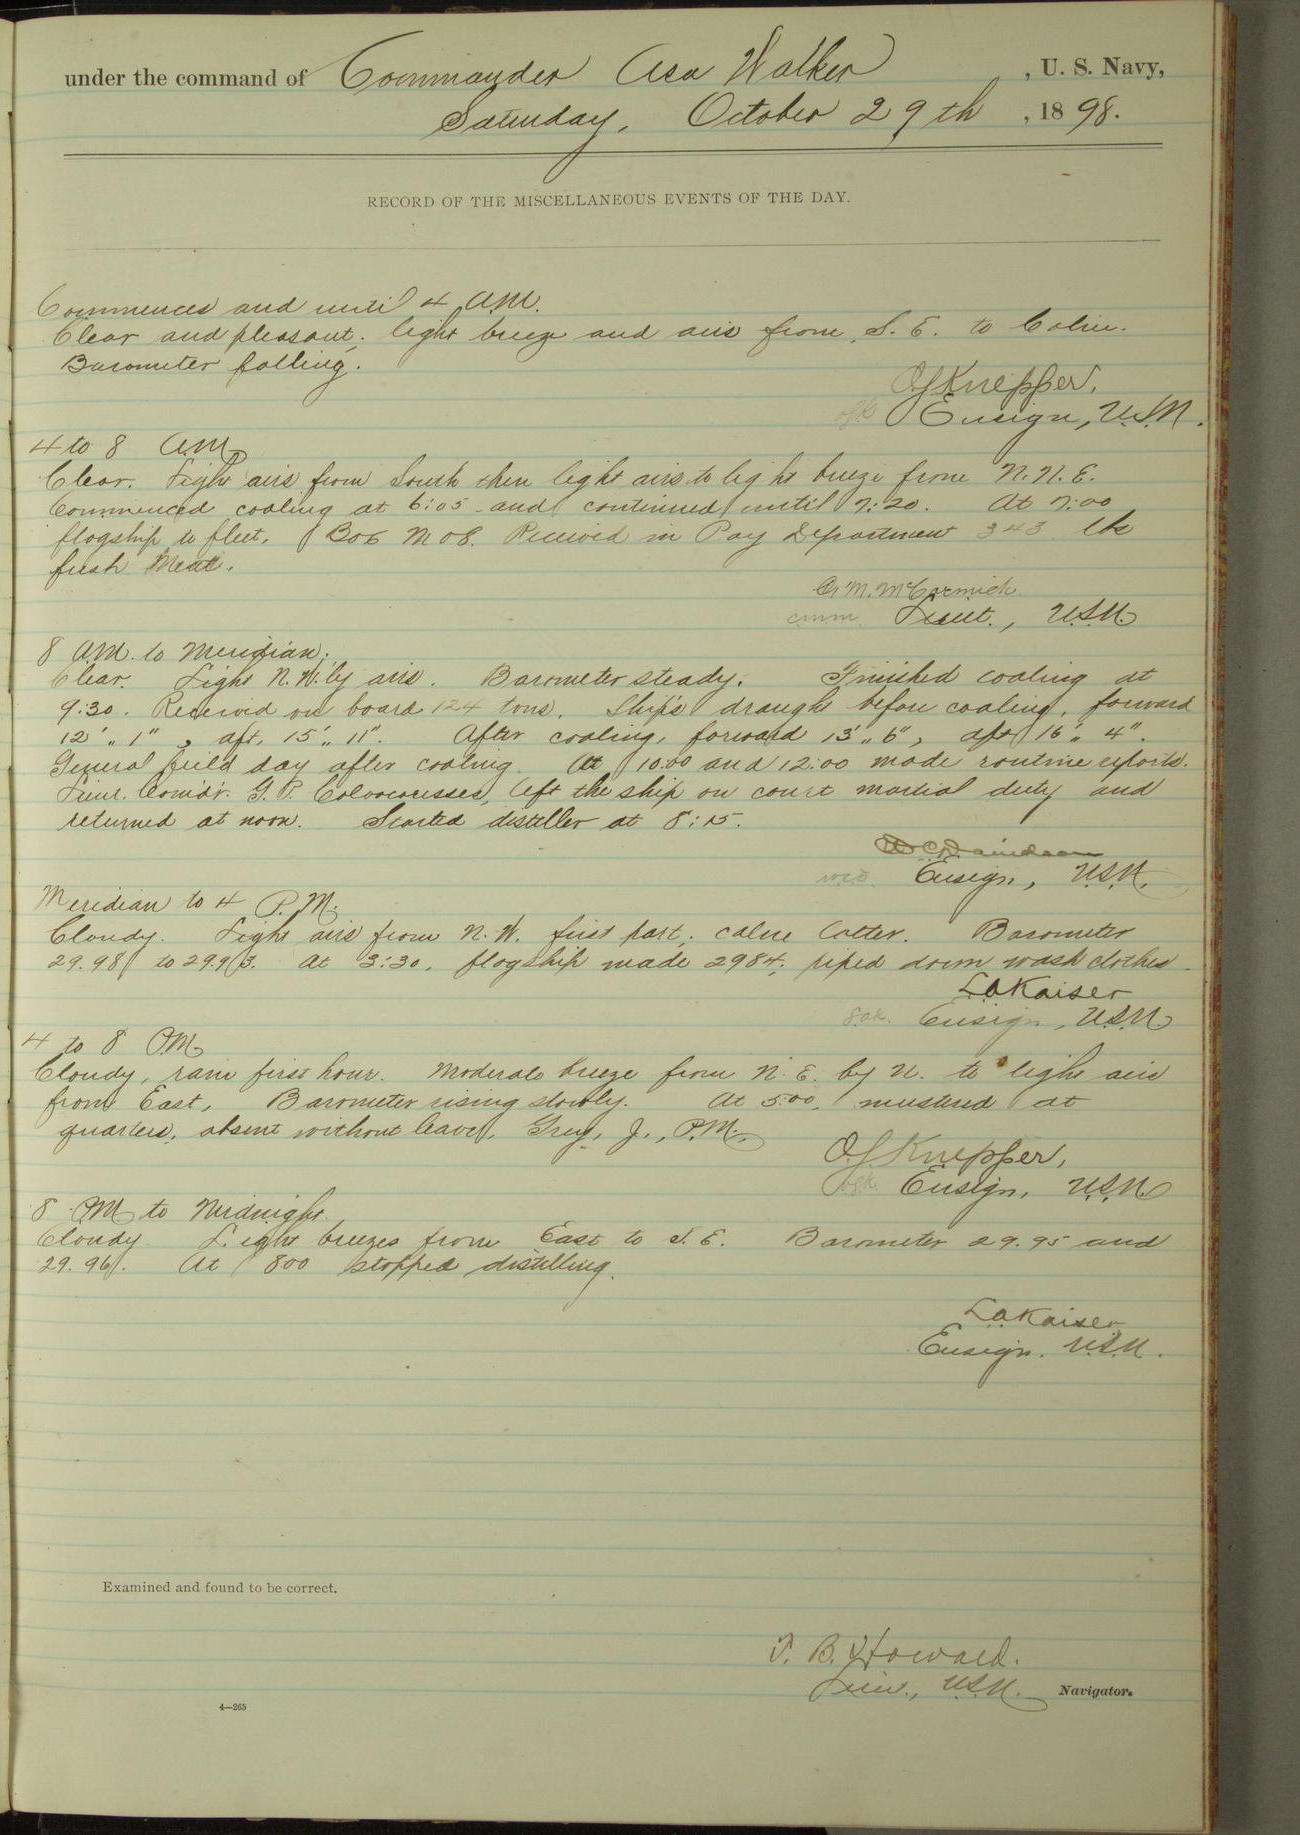 under the command of Commander Asa Walker, U. S. Navy,
Saturday, October 29th, 1898.
RECORD OF THE MISCELLANEOUS EVENTS OF THE DAY.
Commences and until 4 A.M.
Clear and pleasant; light breeze and airs from S. E. to Calm.
Barometer falling.
O.S. Knepper,
Ensign, U.S.N.
4 to 8 A.M.
Clear. Light airs from South then light airs to light breeze from N.N.E.
Commenced coaling at 6:05 and continued until 7:20. At 7:00
flagship to fleet, Received in Pay Department 343 lbs
fresh Meat.
C. M. McCormick
Lieut., U.S.N.
8 A.M. to Meridian.
Clear. Light N.W.ly airs. Barometer steady. Finished coaling at
9:30. Received on board 124 tons. Ship's draught before coaling, forward
12' ,, 1", aft, 15' ,, 11". After coaling, forward 13' ,, 6", aft 16' ,, 4".
General field day after coaling. At 10:00 and 12:00 made routine reports.
Lieut. Comdr. G. P. Colvocoresses, left the ship on court martial duty and
returned at noon. Started distiller at 8:15.
W C Davidson
Ensign, U.S.N.
Meridian to 4 P.M.
Cloudy. Light airs from N.W. first part; calm latter. Barometer
29.98 to 29.93. At 3:30, flagship made 2984; piped down wash clothes.
L A Kaiser
Ensign, U.S.N.
4 to 8 P.M.
Cloudy, rain first hour. Moderate breeze from N.E. by N. to light airs
from East, Barometer rising slowly. At 5:00, mustered at
quarters, absent without leave, Grey, J., P.M.
O.S. Knepper,
Ensign, U.S.N.
8 P.M. to Midnight.
Cloudy Light breezes from East to S.E. Barometer 29.95 and
29.96. At 8 00 stopped distilling.
L A Kaiser
Ensign. U.S.N.
Examined and found to be correct.
T. B. Howard.
Lieut., U.S.N. Navigator.
4—265